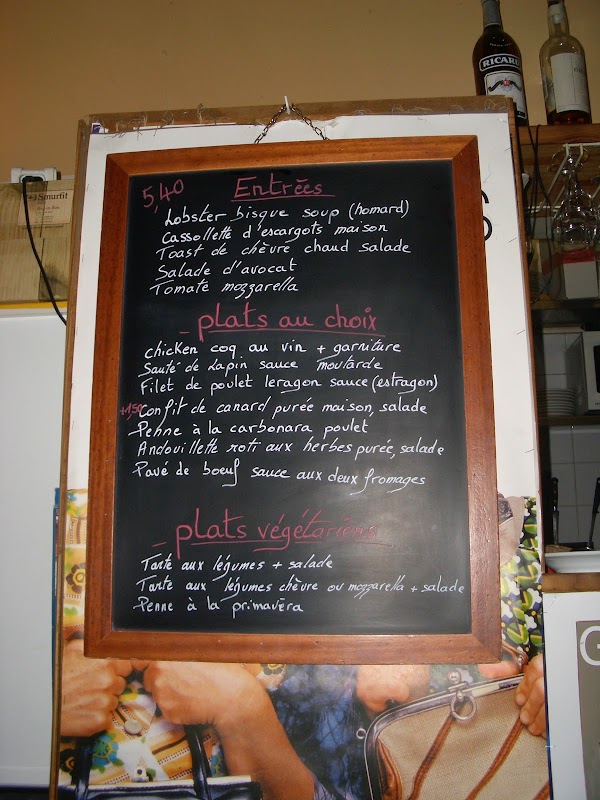 RICARD
Smurfit
5,40 Entrées
Lobster bisque soup (homard)
Cassollette d'escargots maison
Toast de chèvre chaud salade
Salade d'avocat
Tomate mozzarella
- plats au choix
chicken coq au vin + garniture
Sauté de Lapin sauce moutarde
Filet de poulet leragon sauce (estragon)
+1,50 Confit de canard purée maison, salade
Penne à la carbonara poulet
Andouillette roti aux herbes purée, salade
Pavé de boeuf sauce aux deux fromages
- plats végétariens
Tarte aux légumes + salade
Tarte aux légumes chèvre ou mozzarella + salade
Penne à la primavèra